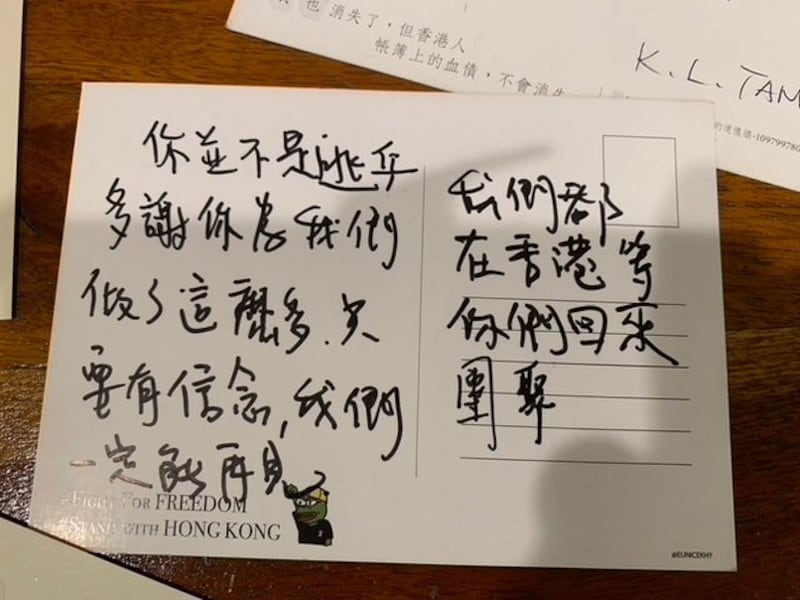 也消失了，但香港人
帳簿上的血債，不會消失
K. L. TAM
-109799780
你並不是逃兵
多謝你為我們
做了這麼多，只
要有信念，我們
一定能再見
#FIGHT FOR FREEDOM
#STAND WITH HONG KONG
我們都
在香港等
你們回來
團聚
@EUNICEKHY